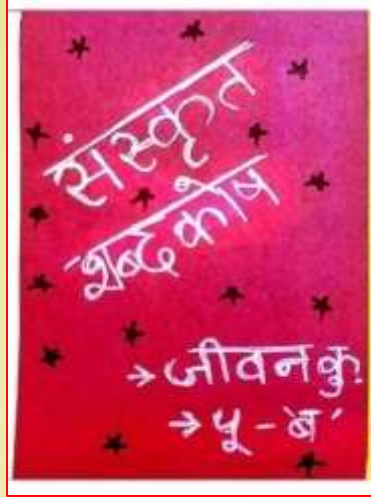 संस्कृत
शब्दकोष
→जीवनकु
→पू-'ब'